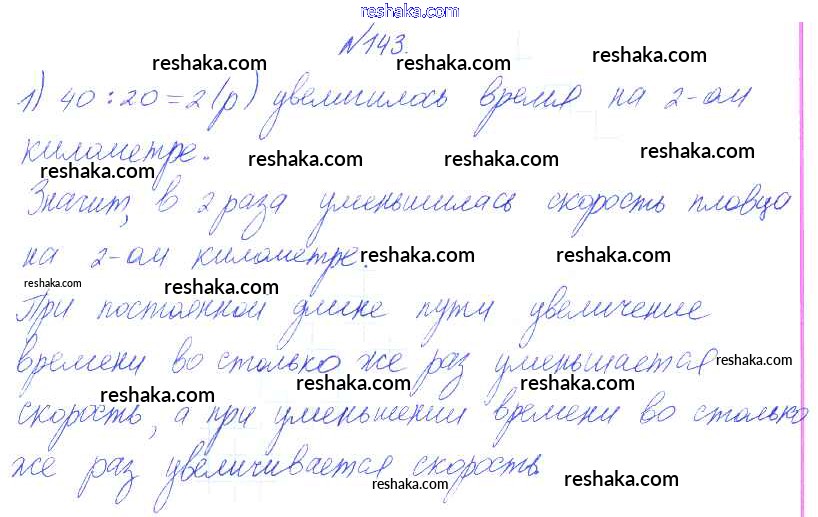 reshaka.com
№143.
reshaka.com reshaka.com
1) 40 : 20 = 2 (р) увеличилось время на 2-ом
reshaka.com reshaka.com
километре.
reshaka.com reshaka.com reshaka.com
Значит, в 2 раза уменьшилась скорость пловца
reshaka.com reshaka.com
на 2-ом километре.
reshaka.com reshaka.com
reshaka.com reshaka.com
При постоянной длине пути увеличение
reshaka.com reshaka.com
времени во столько же раз уменьшается
reshaka.com
reshaka.com reshaka.com reshaka.com
скорость, а при уменьшении времени во столько
reshaka.com reshaka.com
же раз увеличивается скорость.
reshaka.com reshaka.com